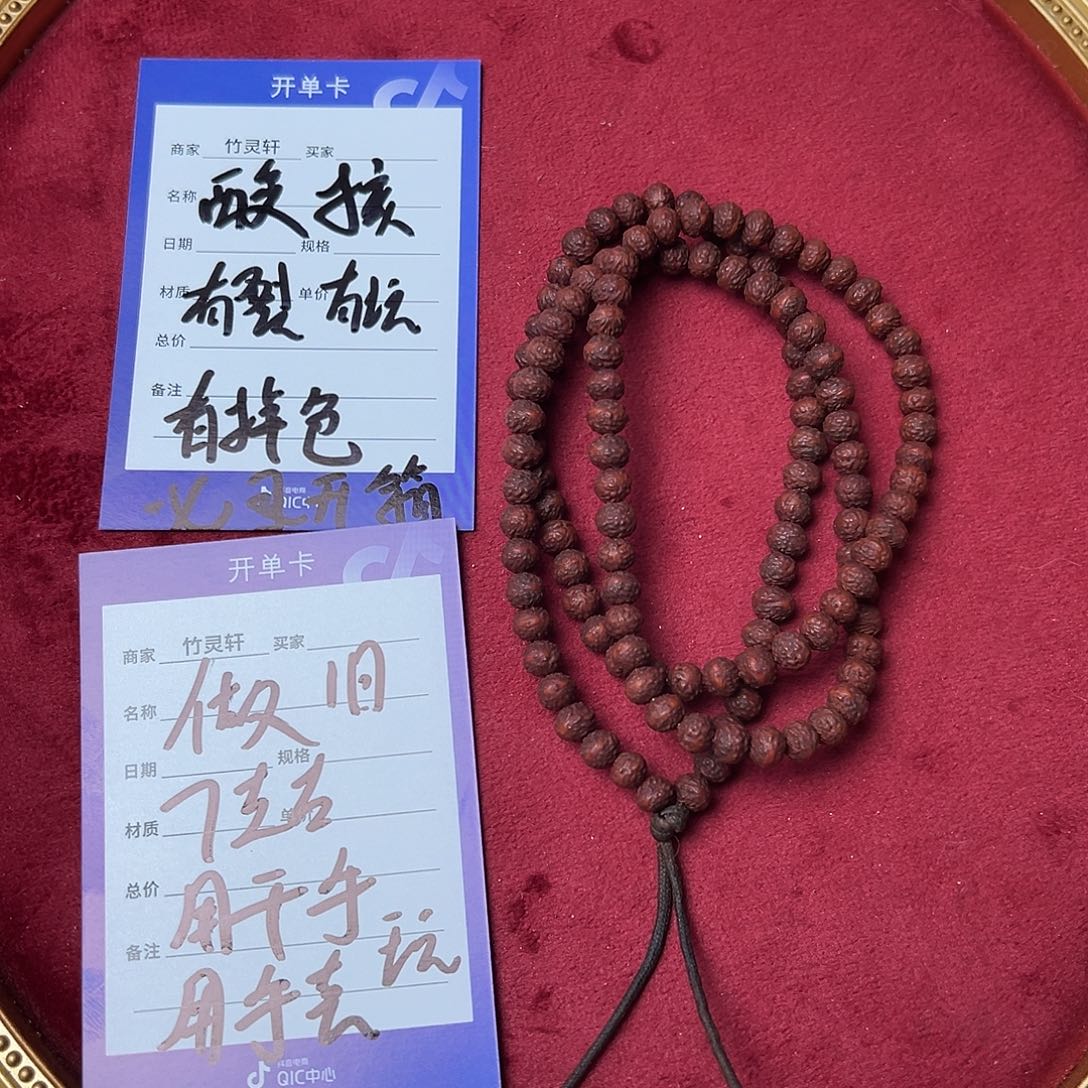 开单卡
商家 竹灵轩 买家
名称 酸核
日期 规格
材质 有裂 单价 有坑
总价
备注
有掉色
必 开箱
抖音电商
QIC中心
开单卡
商家 竹灵轩 买家
名称 做旧
日期 规格
材质 7左右 单价
总价 用干手
备注 玩
用手去
抖音电商
QIC中心